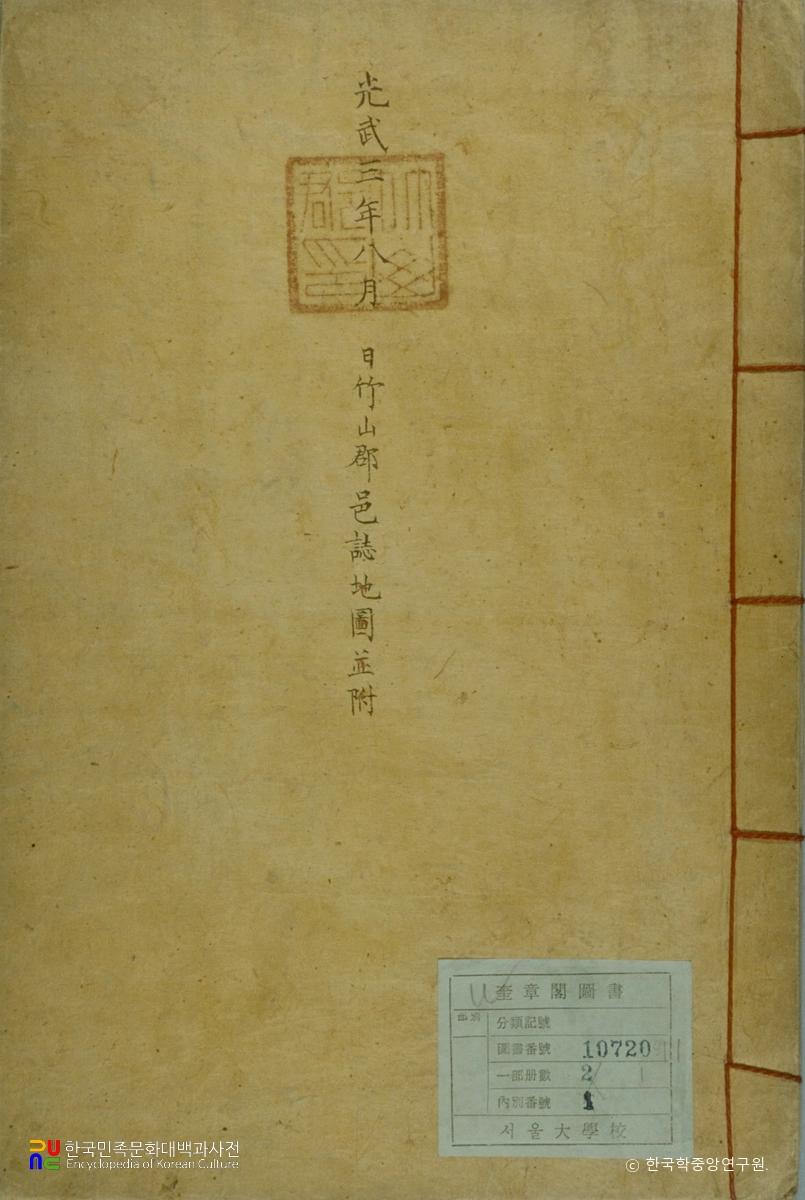 光武三年八月 日竹山郡邑誌地圖並附
奎章閣圖書
分類記號
圖書番號 10720
一部册數 2
內別番號 1
서울大學校
한국민족문화대백과사전
Encyclopedia of Korean Culture
© 한국학중앙연구원.